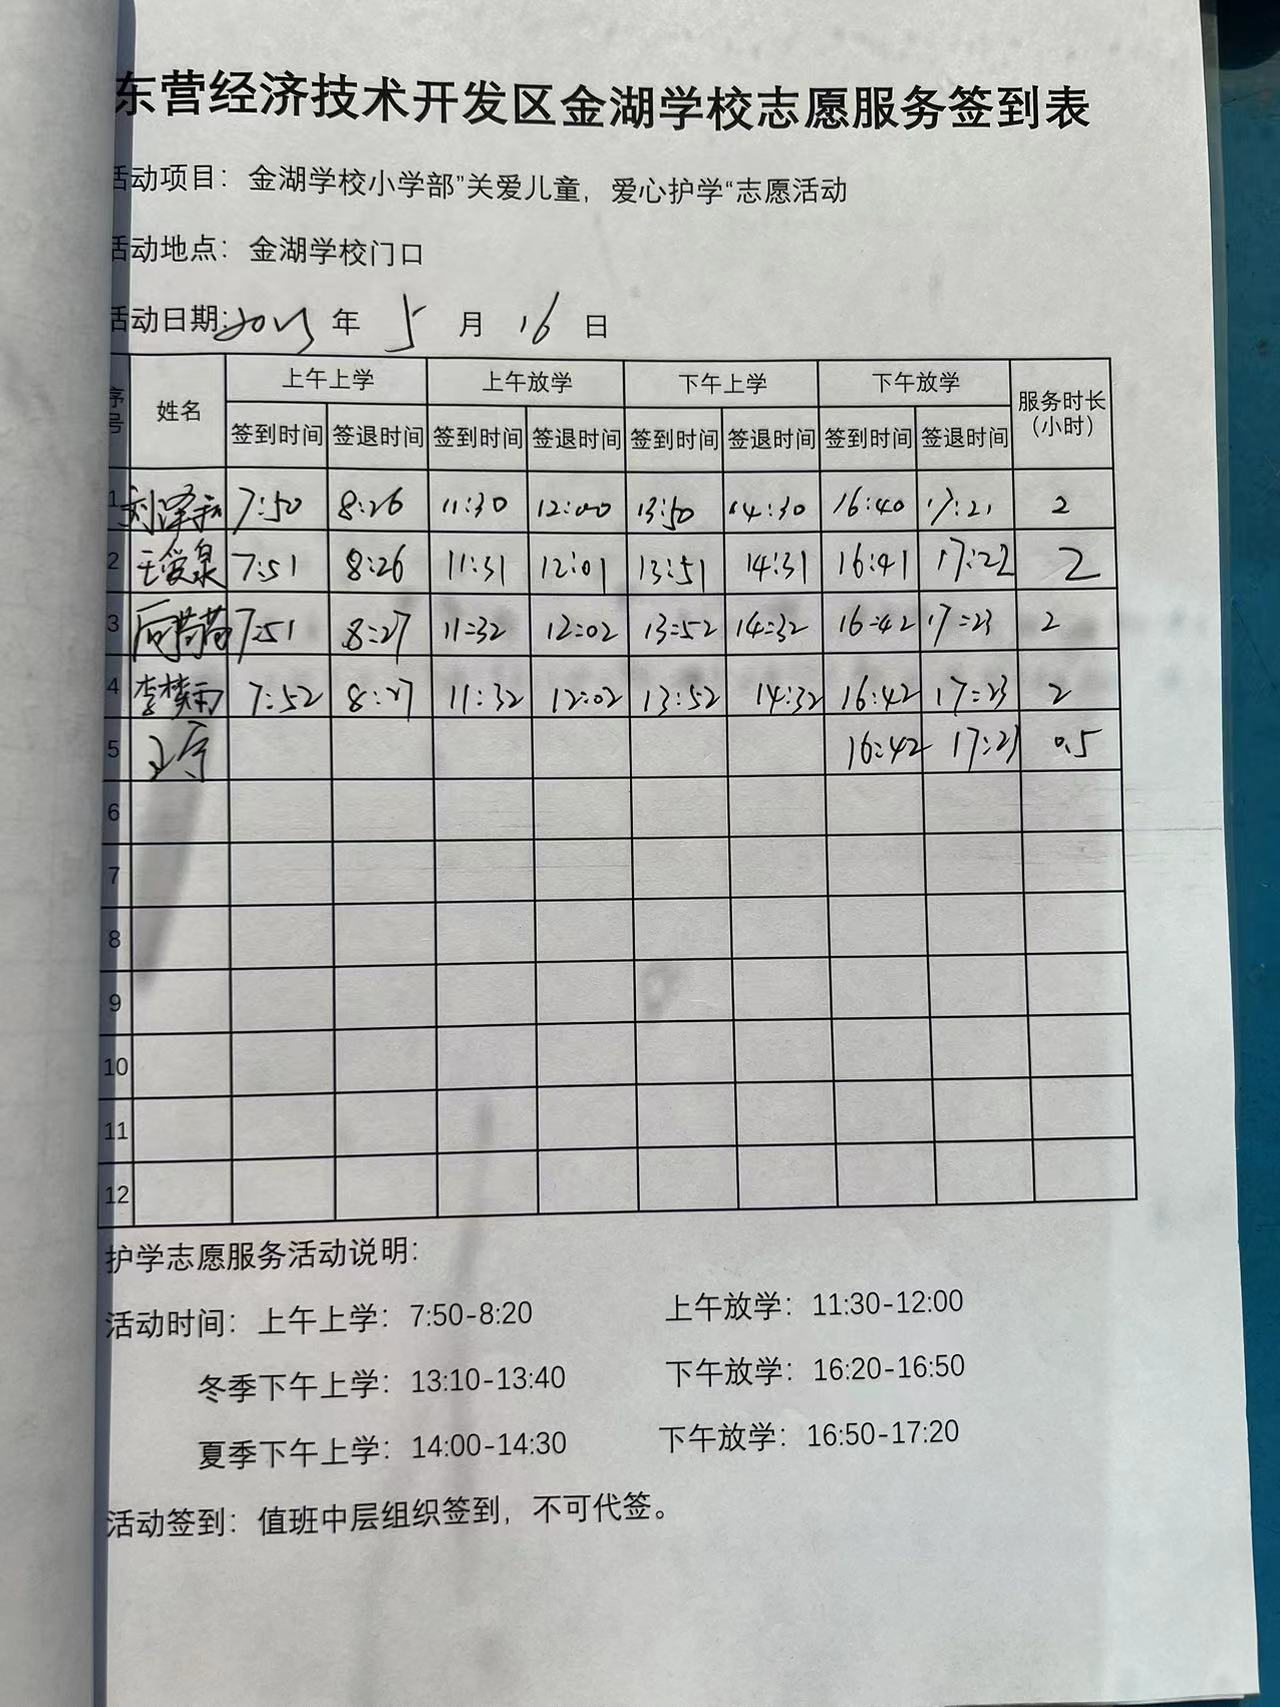 东营经济技术开发区金湖学校志愿服务签到表
活动项目：金湖学校小学部”关爱儿童，爱心护学“志愿活动
活动地点：金湖学校门口
活动日期：2025 年 5 月 16 日
序号 姓名 上午上学 上午放学 下午上学 下午放学 服务时长（小时）
签到时间 签退时间 签到时间 签退时间 签到时间 签退时间 签到时间 签退时间
1 7:50 8:26 11:30 12:00 13:50 14:30 16:40 17:21 2
2 王爱泉 7:51 8:26 11:31 12:01 13:51 14:31 16:41 17:22 2
3 7:51 8:27 11:32 12:02 13:52 14:32 16:42 17:23 2
4 李梦雨 7:52 8:27 11:32 12:02 13:52 14:32 16:42 17:23 2
5 16:42 17:23 0.5
6
7
8
9
10
11
12
护学志愿服务活动说明：
活动时间：上午上学：7:50-8:20 上午放学：11:30-12:00
冬季下午上学：13:10-13:40 下午放学：16:20-16:50
夏季下午上学：14:00-14:30 下午放学：16:50-17:20
活动签到：值班中层组织签到，不可代签。